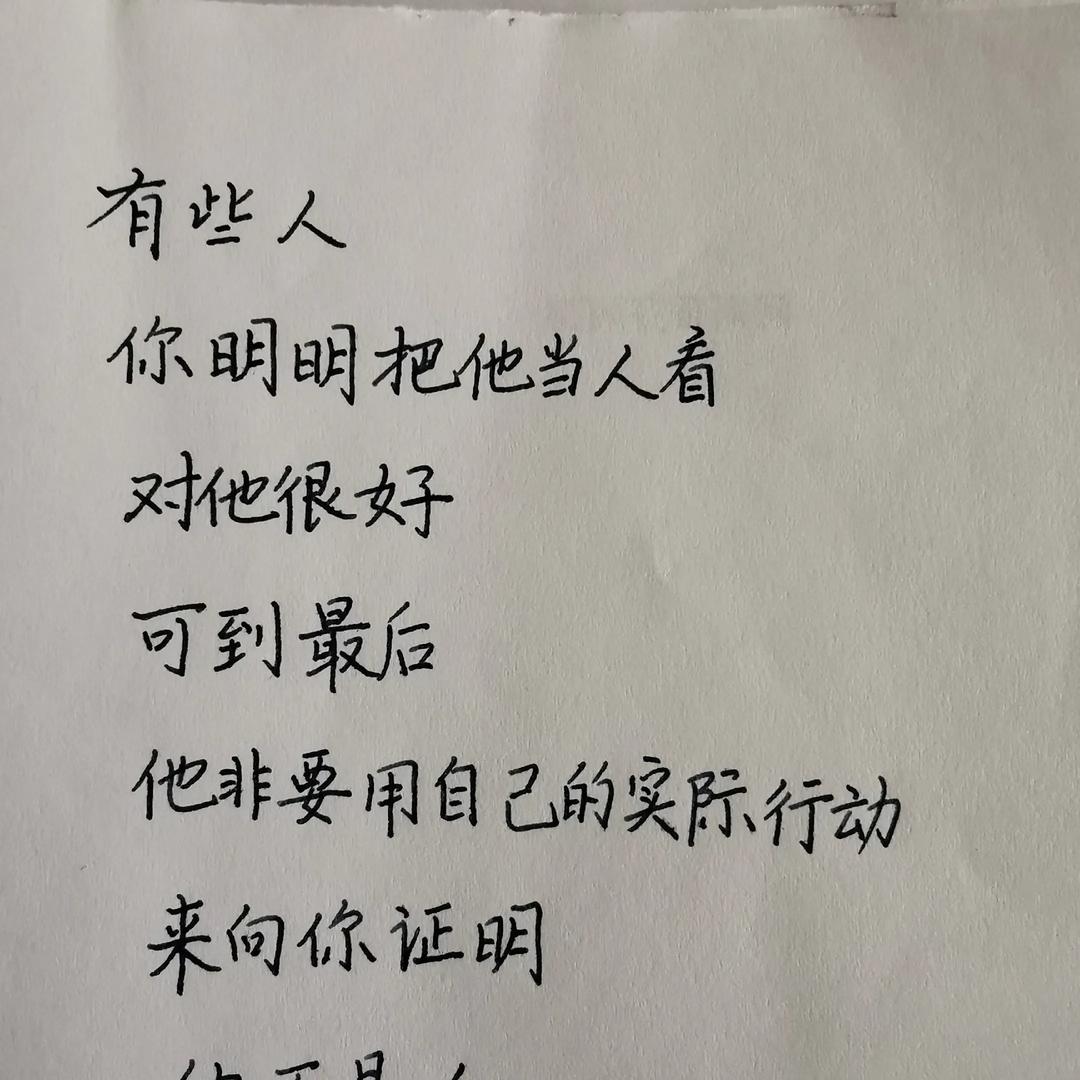 有些人
你明明把他当人看
对他很好
可到最后
他非要用自己的实际行动
来向你证明